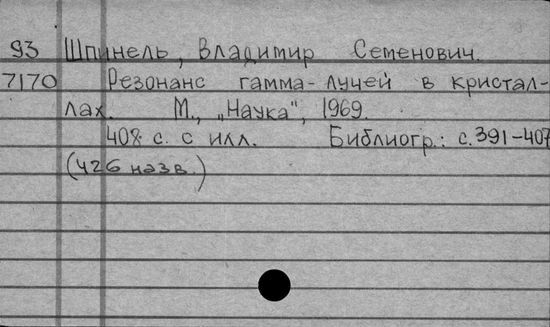 93 Шпинель, Владимир Семенович.
7170 Резонанс гамма-лучей в кристал-
лах. М., „Наука", 1969.
408 с. с илл. Библиогр.: с. 391-407
(426 назв.)